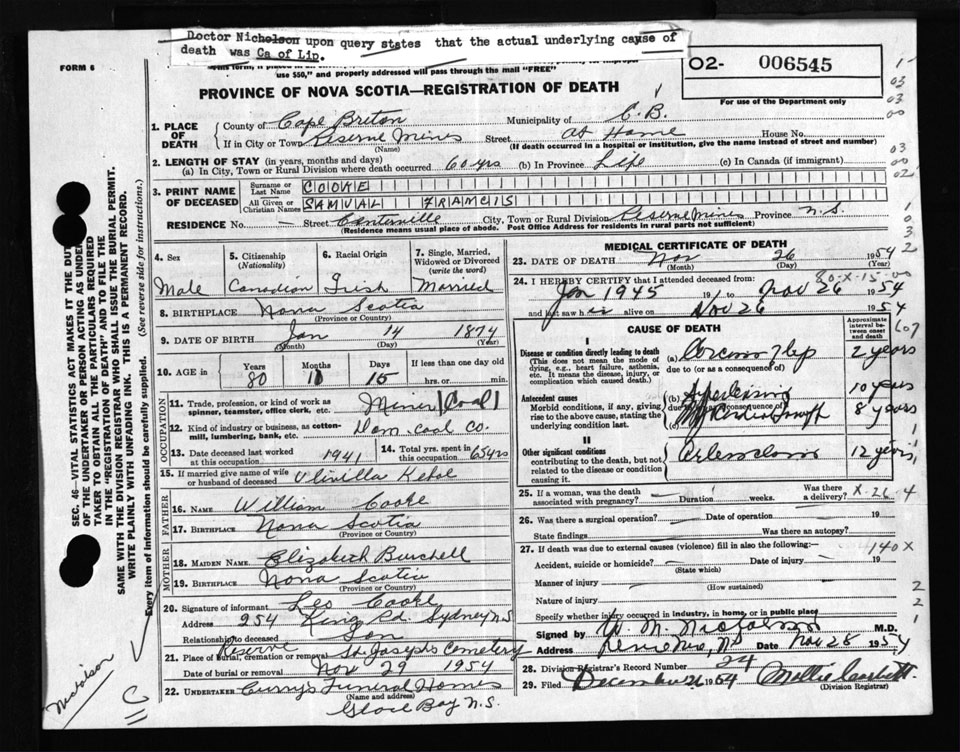 Doctor Nicholson upon query states that the actual underlying cause of
death was Ca of Lip.
FORM 6
use $50," and properly addressed will pass through the mail "FREE"
O2- 006545
For use of the Department only
PROVINCE OF NOVA SCOTIA—REGISTRATION OF DEATH
1. PLACE OF DEATH
County of Cape Breton Municipality of C.B.
If in City or Town Reserve Mines Street At Home House No.
(Name) (If death occurred in a hospital or institution, give the name instead of street and number)
2. LENGTH OF STAY (in years, months and days)
(a) In City, Town or Rural Division where death occurred 60 yrs (b) In Province Life (c) In Canada (if immigrant)
3. PRINT NAME OF DECEASED
Surname or Last Name COOKE
All Given or Christian Names SAMUAL FRANCIS
RESIDENCE No. — Street Centerville City, Town or Rural Division Reserve Mines Province N.S.
(Residence means usual place of abode. Post Office Address for residents in rural parts not sufficient)
4. Sex Male
5. Citizenship (Nationality) Canadian
6. Racial Origin Irish
7. Single, Married, Widowed or Divorced (write the word) Married
8. BIRTHPLACE Nova Scotia
(Province or Country)
9. DATE OF BIRTH Jan 14 1874
(Month) (Day) (Year)
10. AGE in Years 80 Months Days 15 If less than one day old hrs. or min.
OCCUPATION
11. Trade, profession, or kind of work as spinner, teamster, office clerk, etc. Miner (Coal)
12. Kind of industry or business, as cotton-mill, lumbering, bank, etc. Dom. Coal Co.
13. Date deceased last worked at this occupation 1941
14. Total yrs. spent in this occupation 65 yrs
15. If married give name of wife or husband of deceased
FATHER
16. NAME William Cooke
17. BIRTHPLACE Nova Scotia
(Province or Country)
MOTHER
18. MAIDEN NAME Elizabeth Burchell
19. BIRTHPLACE Nova Scotia
(Province or Country)
20. Signature of informant Leo Cooke
Address 254 King Rd. Sydney N.S
Relationship to deceased Son
21. Place of burial, cremation or removal Reserve St Josephs Cemetery
Date of burial or removal Nov 29 1954
22. UNDERTAKER Curry's Funeral Homes
(Name and address)
Glace Bay N.S.
MEDICAL CERTIFICATE OF DEATH
23. DATE OF DEATH Nov 26 1954
(Month) (Day) (Year)
30-X-15-00
24. I HEREBY CERTIFY that I attended deceased from:
Jan 1945 19 to Nov 26 1954
and last saw h im alive on Nov 26 1954
CAUSE OF DEATH
Approximate interval between onset and death
I
Disease or condition directly leading to death
(This does not mean the mode of dying, e.g., heart failure, asthenia, etc. It means the disease, injury, or complication which caused death.)
(a) Carcinoma of lip 2 years
due to (or as a consequence of)
Antecedent causes
Morbid conditions, if any, giving rise to the above cause, stating the underlying condition last.
(b) 10 years
due to (or as a consequence of)
8 years
II
Other significant conditions
contributing to the death, but not related to the disease or condition causing it.
12 years
25. If a woman, was the death associated with pregnancy? — Duration weeks. Was there a delivery?
26. Was there a surgical operation? — Date of operation — 19
State findings Was there an autopsy?
27. If death was due to external causes (violence) fill in also the following:—
140 X
Accident, suicide or homicide? Date of injury 19
(State which)
Manner of injury
(How sustained)
Nature of injury
Specify whether injury occurred in industry, in home, or in public place
Signed by W. M. Nicholson M.D.
Address Date Nov 28 1954
28. Division Registrar's Record Number 24
29. Filed December 1954 Mollie Corbett.
(Division Registrar)
SEC. 46—VITAL STATISTICS ACT MAKES IT THE DUTY
OF THE UNDERTAKER OR PERSON ACTING AS UNDERTAKER TO OBTAIN ALL THE PARTICULARS REQUIRED
IN THE "REGISTRATION OF DEATH" AND TO FILE THE
SAME WITH THE DIVISION REGISTRAR WHO SHALL ISSUE THE BURIAL PERMIT.
WRITE PLAINLY WITH UNFADING INK. THIS IS A PERMANENT RECORD.
Every item of information should be carefully supplied. (See reverse side for instructions.)
Nicholson